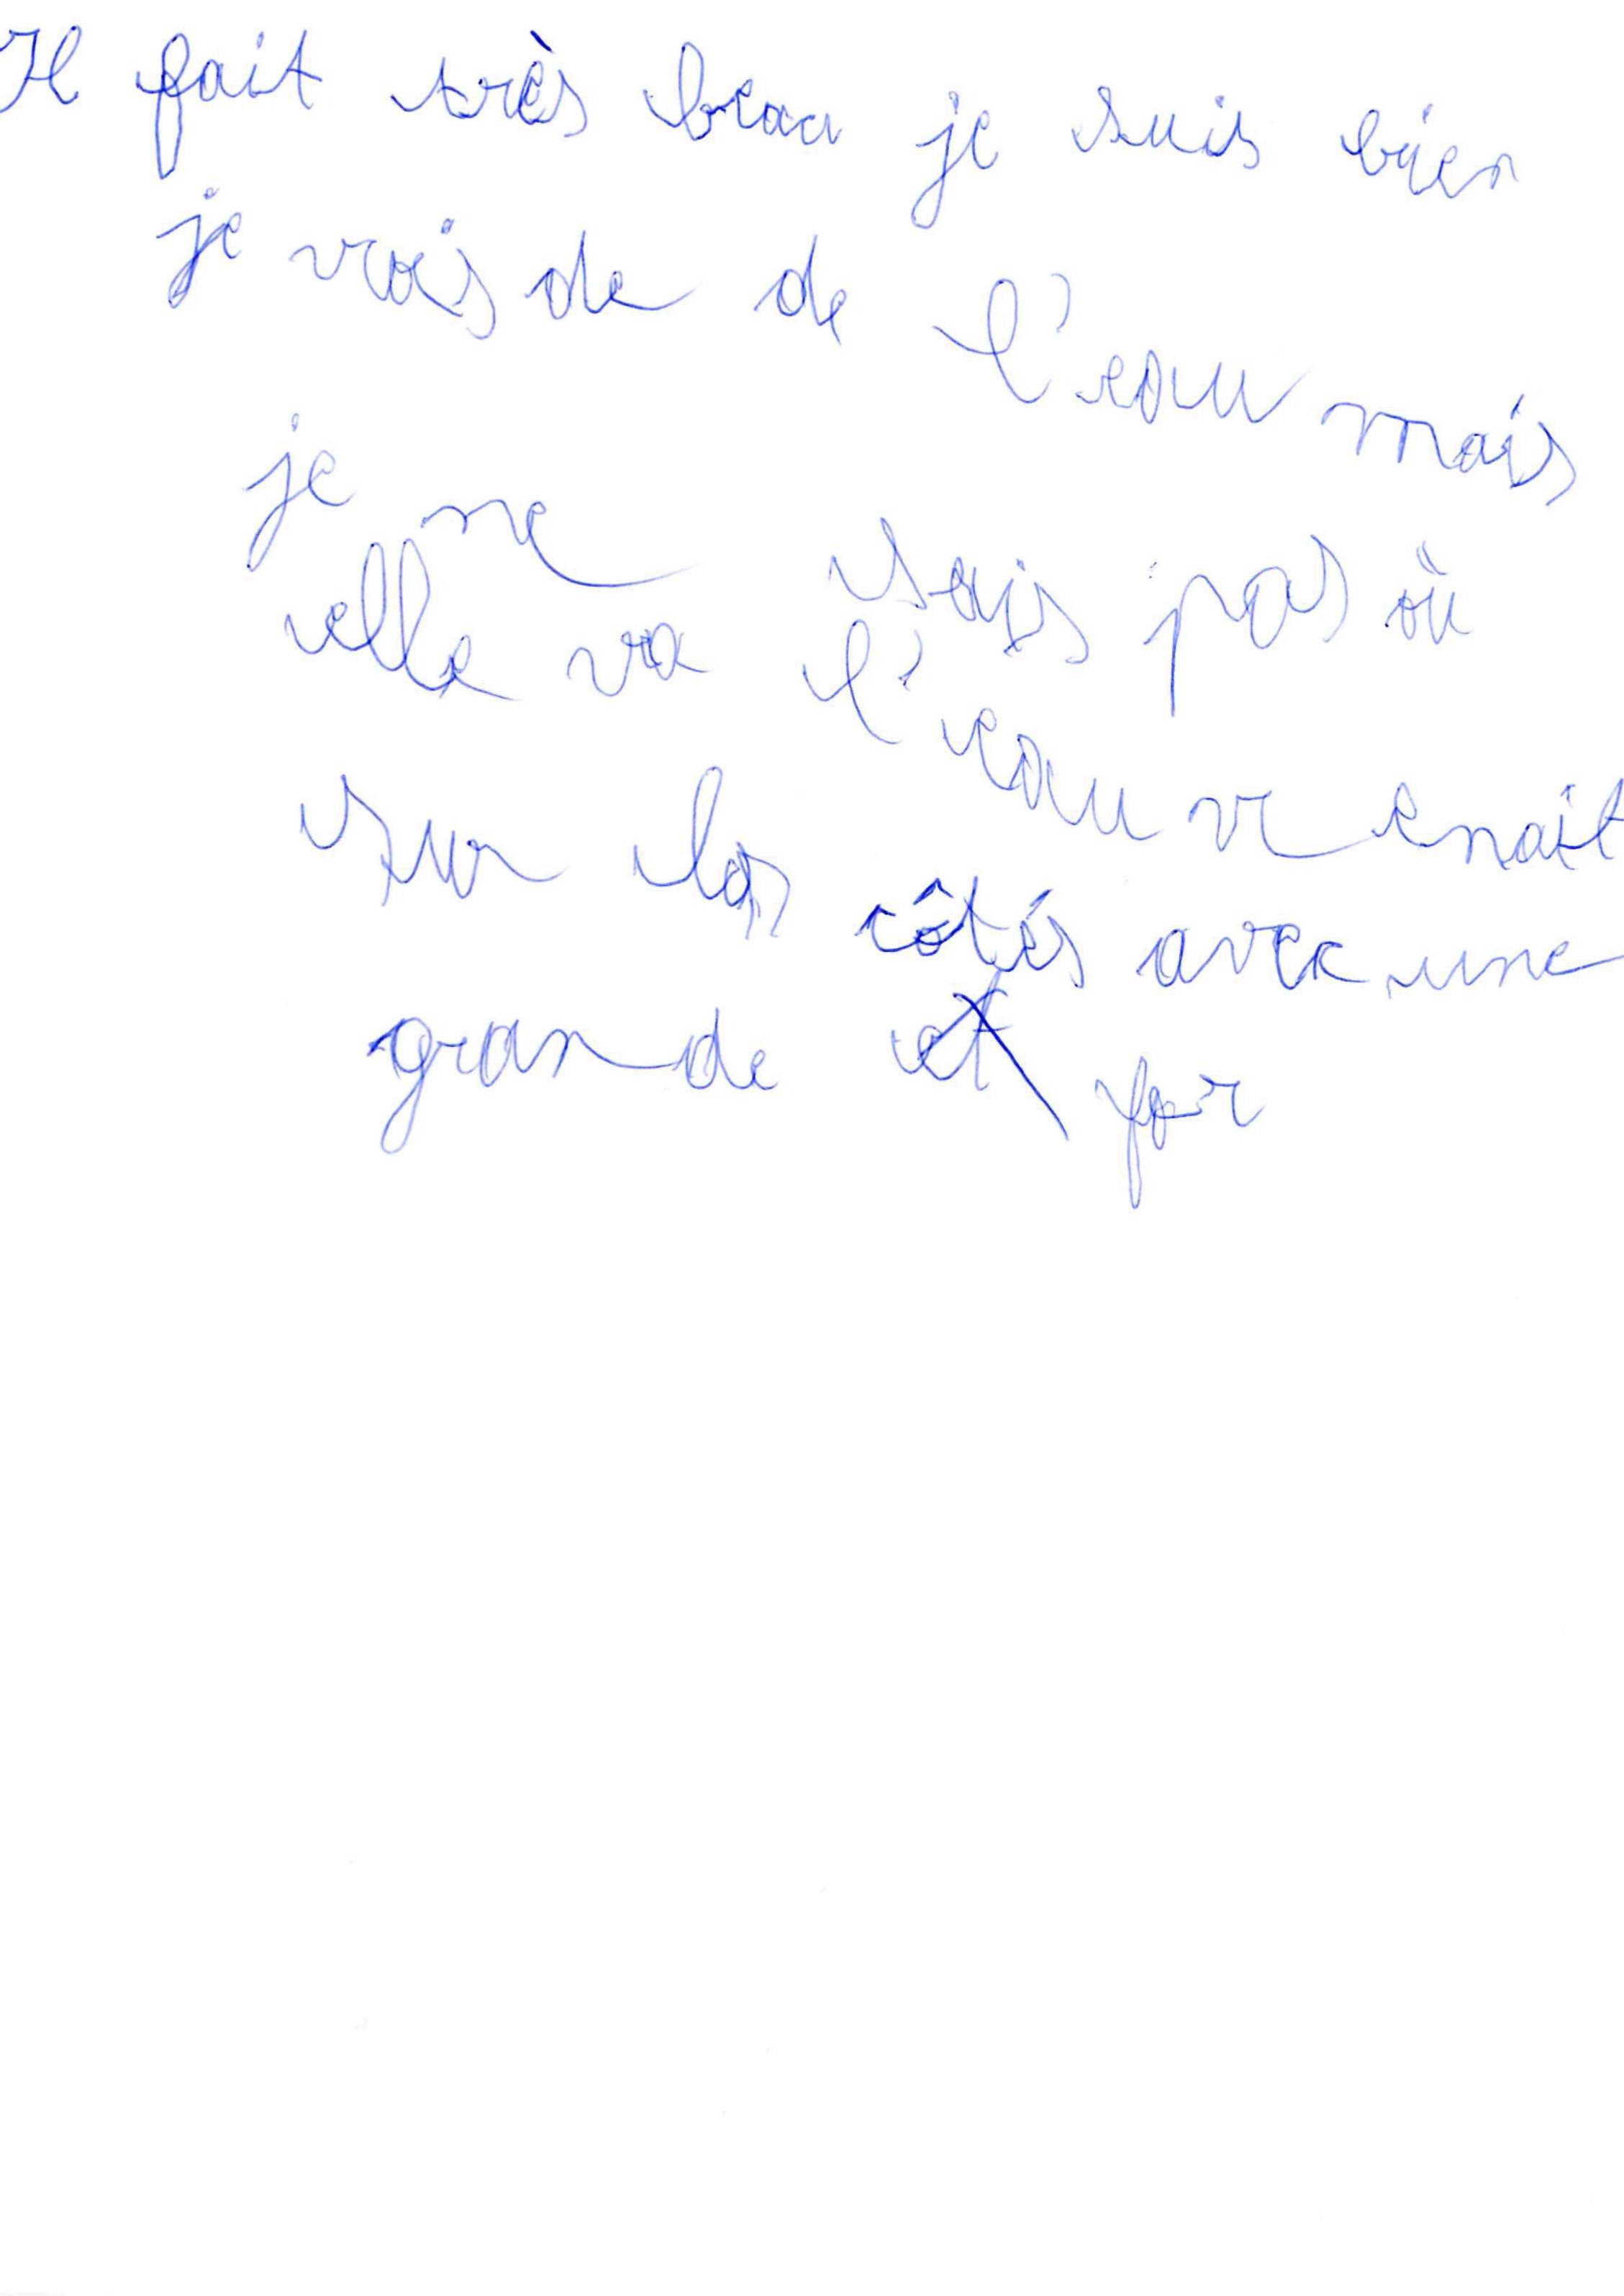 Il fait très beau je suis bien
je vois de de l'eau mais
je ne sais pas où
elle va l'eau venait
sur les côtés avec une
grande et for